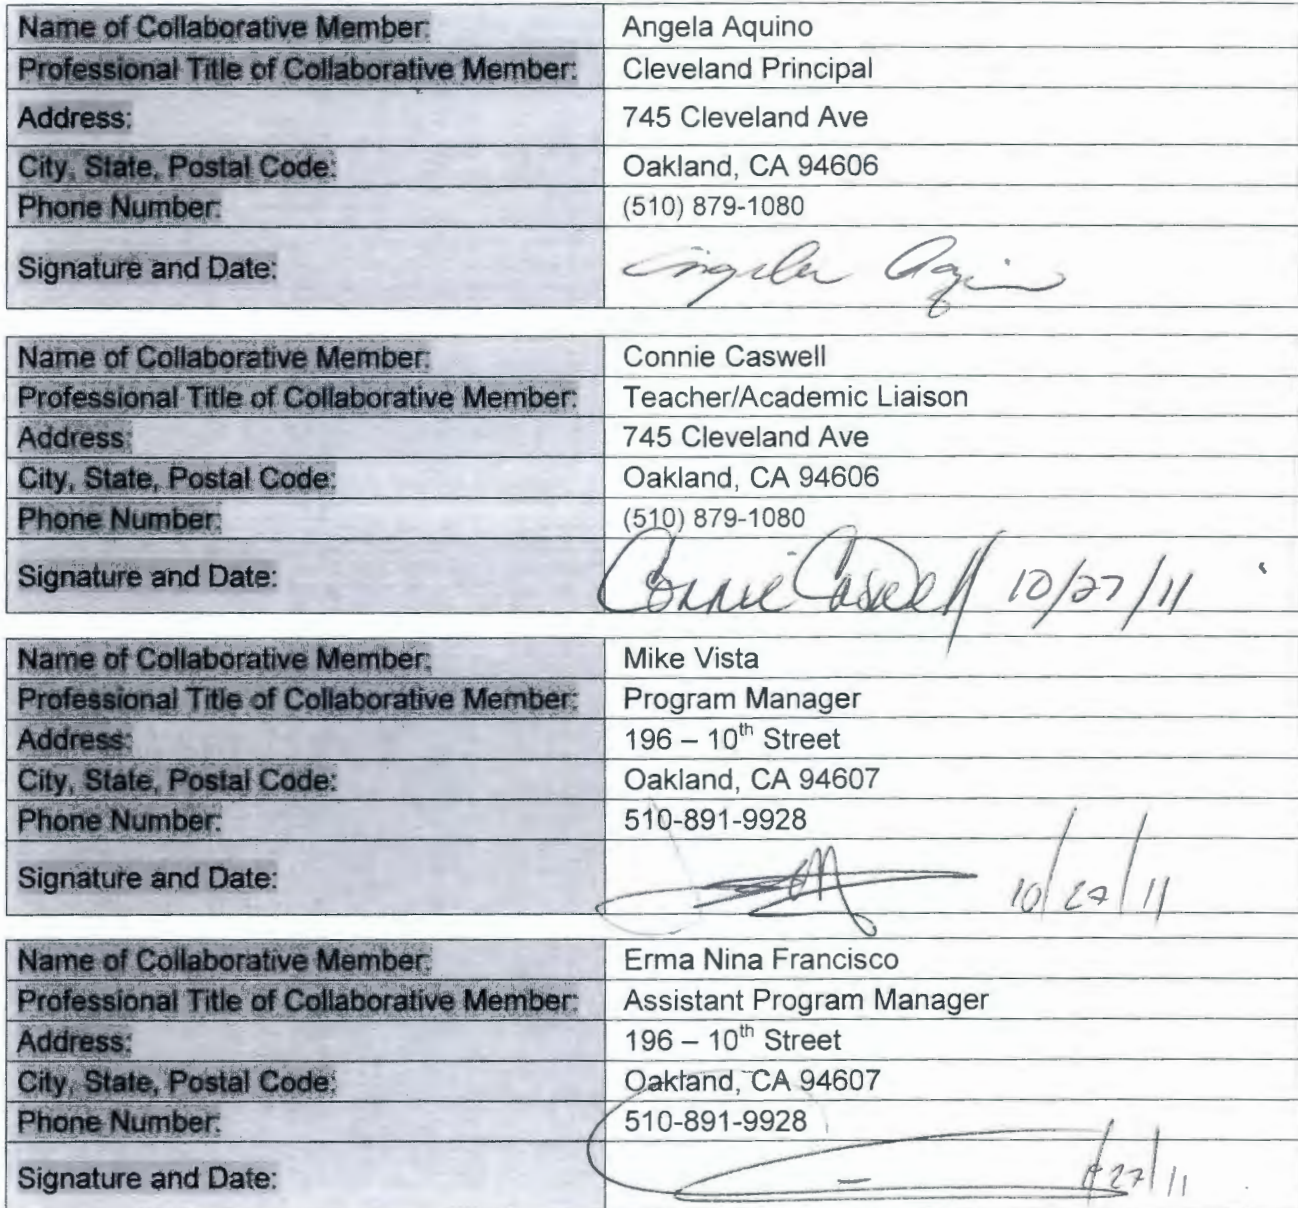 Name of Collaborative Member: Angela Aquino
Professional Title of Collaborative Member: Cleveland Principal
Address: 745 Cleveland Ave
City, State, Postal Code: Oakland, CA 94606
Phone Number: (510) 879-1080
Signature and Date: Angela Aquino
Name of Collaborative Member: Connie Caswell
Professional Title of Collaborative Member: Teacher/Academic Liaison
Address: 745 Cleveland Ave
City, State, Postal Code: Oakland, CA 94606
Phone Number: (510) 879-1080
Signature and Date: Connie Caswell 10/27/11
Name of Collaborative Member: Mike Vista
Professional Title of Collaborative Member: Program Manager
Address: 196 – 10th Street
City, State, Postal Code: Oakland, CA 94607
Phone Number: 510-891-9928
Signature and Date: 10/27/11
Name of Collaborative Member: Erma Nina Francisco
Professional Title of Collaborative Member: Assistant Program Manager
Address: 196 – 10th Street
City, State, Postal Code: Oakland, CA 94607
Phone Number: 510-891-9928
Signature and Date: 27/11